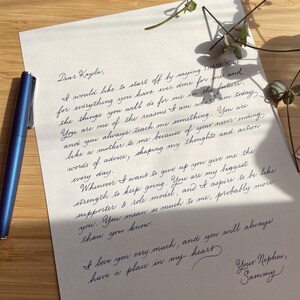 Dear Kayla,
I would like to start off by saying THANK YOU
for everything you have ever done for me and
the things you will do for me in the future.
You are one of the reasons I am who I am today,
and you always teach me something. You are
like a mother to me because of your never ending
words of advice, shaping my thoughts and action
every day.
Whenever I want to give up you give me the
strength to keep going. You are my biggest
supporter & role model, and I aspire to be like
you. You mean so much to me, probably more
than you know.
I love you very much, and you will always
have a place in my heart
Your Nephew,
Sammy